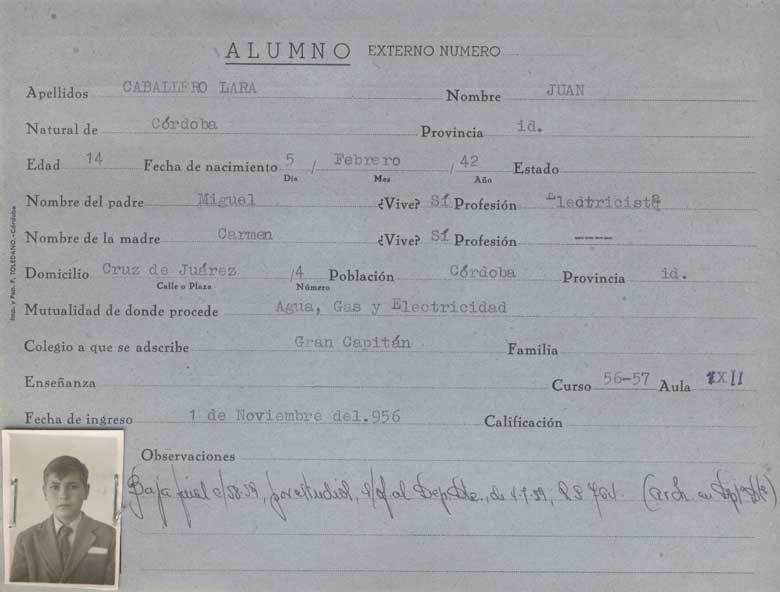 ALUMNO EXTERNO NUMERO
Apellidos CABALLERO LARA Nombre JUAN
Natural de Córdoba Provincia id.
Edad 14 Fecha de nacimiento 5 / Febrero / 42 Estado
Día Mes Año
Nombre del padre Miguel ¿Vive? Sí Profesión Electricista
Nombre de la madre Carmen ¿Vive? Sí Profesión ----
Domicilio Cruz de Juárez /4 Población Córdoba Provincia id.
Calle o Plaza Número
Mutualidad de donde procede Agua, Gas y Electricidad
Colegio a que se adscribe Gran Capitán Familia
Enseñanza Curso 56-57 Aula
Fecha de ingreso 1 de Noviembre del.956 Calificación
Observaciones
Baja
Imp. y Pap. F. TOLEDANO.-Córdoba